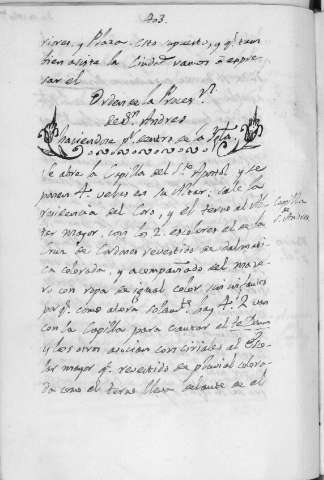 203.
riores, y Plaza. Esto supuesto, y qe. tam
bien asiste la Ciudad vamos à expre-
sar el
Orden de la Proces.n
de Sn. Andres
haciendose pr. dentro de la Igla.
Se abre la Capilla del Sto. Apostol y se
ponen 4.º velas en su Altar: sale la
residencia del Coro, y el terno al Al-
tar mayor, con los 2. escolares el de la
Cruz de Cordones revestido de dalmati
ca colorada, y acompañado del mace-
ro con ropa de igual color, sin infantes
porqe. como ahora solamte. hay 4. 2 van
con la Capilla para cantar el te Deum
y los otros asocian con ciriales al Esco-
lar mayor qe. revestido de pluvial colora-
do como el terno lleva delante de el
Capilla
Sn. Andres